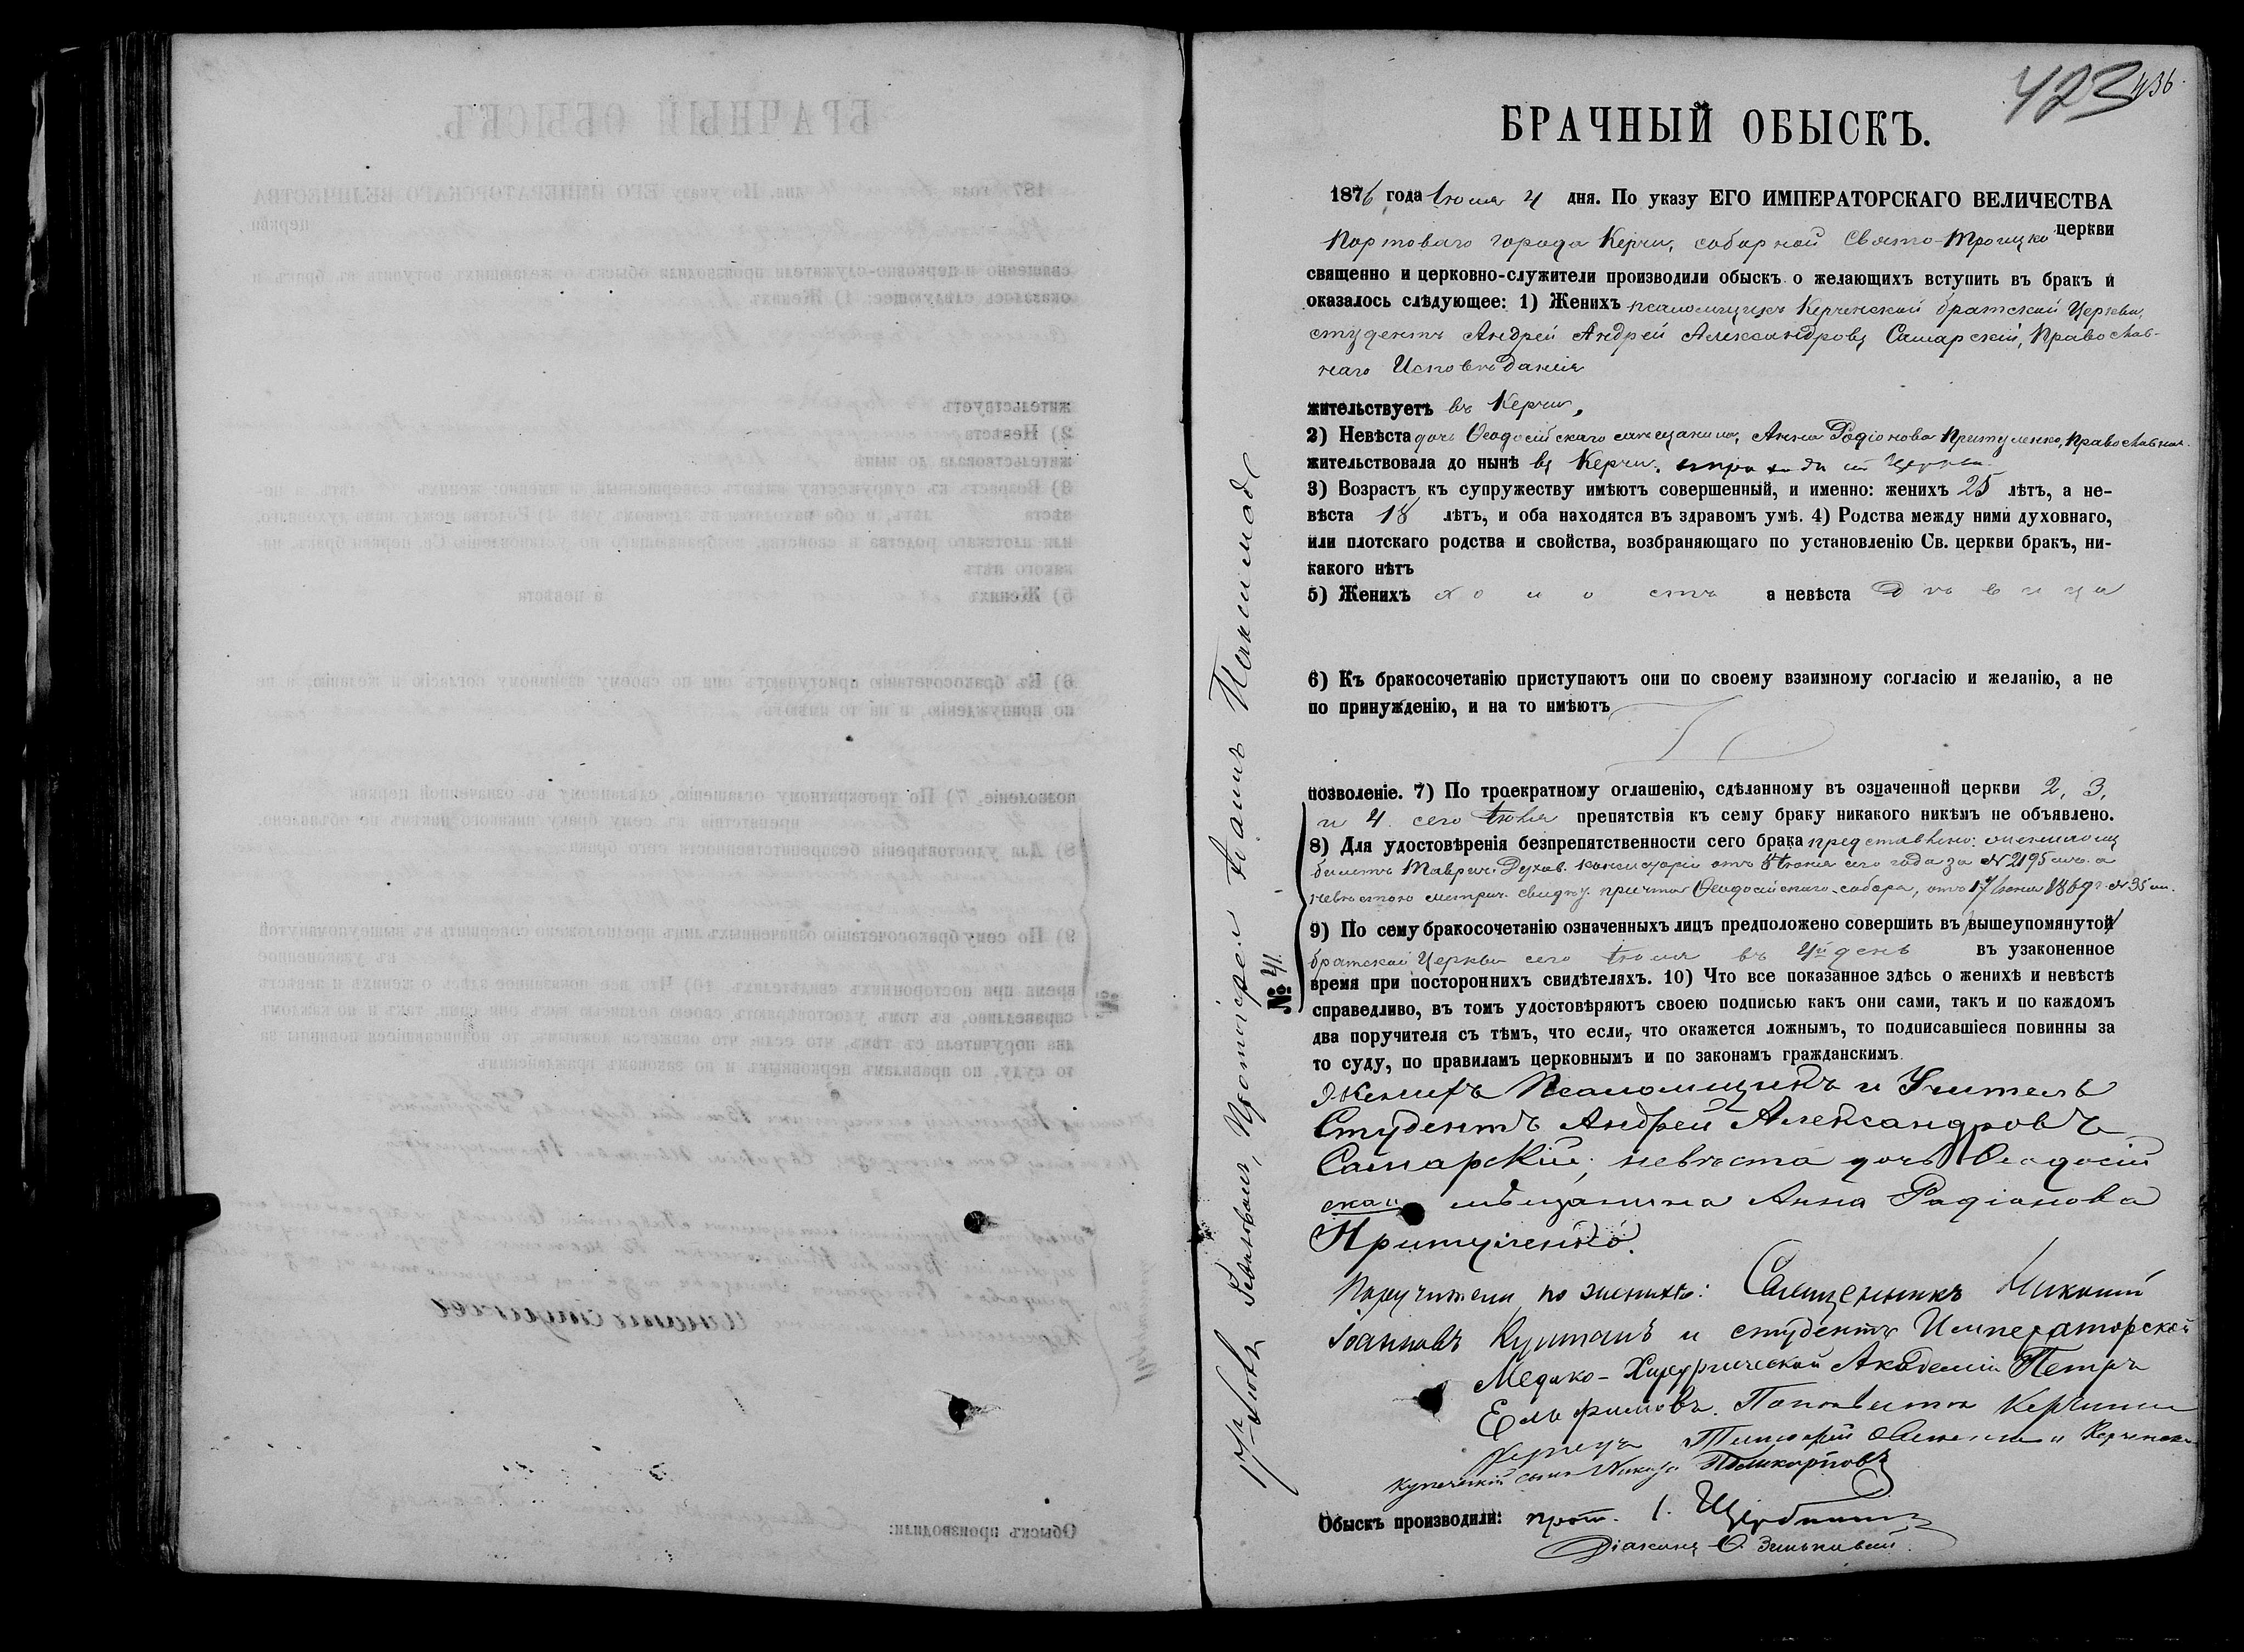 423
436
БРАЧНЫЙ ОБЫСКЪ.
1876 года Іюля 4 дня. По указу ЕГО ИМПЕРАТОРСКАГО ВЕЛИЧЕСТВА
Портоваго города Керчи, соборной Свято-Троицко церкви
священно и церковно-служители производили обыскъ о желающихъ вступить въ бракъ и
оказалось слѣдующее: 1) Женихъ псаломщикъ Керченской братской Церкви,
студентъ Андрей Андрей Александровъ Самарскій, Православ-
наго Исповѣданія
жительствуетъ въ Керчи,
2) Невѣста дочь Ѳеодосійскаго мѣщанина, Анна Родіонова Притуленко, православная.
жительствовала до нынѣ въ Керчи, церкви
3) Возрастъ къ супружеству имѣютъ совершенный, и именно: женихъ 25 лѣтъ, а не-
вѣста 18 лѣтъ, и оба находятся въ здравомъ умѣ. 4) Родства между ними духовнаго,
или плотскаго родства и свойства, возбраняющаго по установленію Св. церкви бракъ, ни-
какого нѣтъ
5) Женихъ холостъ а невѣста дѣвица
6) Къ бракосочетанію приступаютъ они по своему взаимному согласію и желанію, а не
по принужденію, и на то имѣютъ
позволеніе. 7) По троекратному оглашенію, сдѣланному въ означенной церкви 2, 3,
и 4 сего Іюля препятствія къ сему браку никакого никѣмъ не объявлено.
8) Для удостовѣренія безпрепятственности сего брака представлено: женихомъ
билетъ Таврич. Духов. Консисторіи отъ Іюня сего года за № 2195 а
невѣстою метрич. свидѣт. причта Ѳеодосійскаго собора, отъ 17 Іюня 1869 г. № 35
9) По сему бракосочетанію означенныхъ лицъ предположено совершить въ вышеупомянутой
братской Церкви сего Іюля въ 4й день въ узаконенное
время при постороннихъ свидѣтеляхъ. 10) Что все показанное здѣсь о женихѣ и невѣстѣ
справедливо, въ томъ удостовѣряютъ своею подписью какъ они сами, такъ и по каждомъ
два поручителя съ тѣмъ, что если, что окажется ложнымъ, то подписавшіеся повинны за
то суду, по правиламъ церковнымъ и по законамъ гражданскимъ.
Женихъ Псаломщикъ и Учитель
Студентъ Андрей Александровъ
Самарскій; невѣста дочь Ѳеодосій
скаго мѣщанина Анна Родіонова
Притуленко.
Поручители по женихѣ: Священникъ
Іоанновъ и студентъ Императорской
Медико-Хирургической Академіи Петръ
Керчинскій
купеческій сынъ Поликарповъ
Обыскъ производили: прот. І.
Діаконъ Ѳ.
№ 41.
Протоіерей Іоаннъ